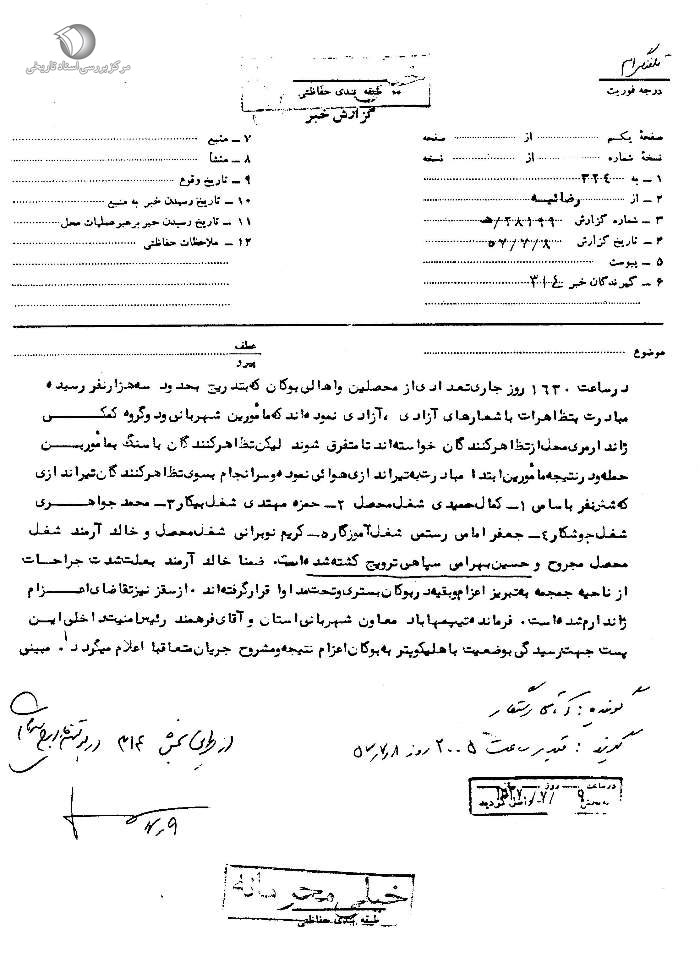 مرکز بررسی اسناد تاریخی
تلگرام
درجه فوریت
طبقه بندی حفاظتی
گزارش خبر
صفحهٔ یکم از صفحه
نسخهٔ شماره از نسخه
۱ ــ به ۳۲۴
۲ ــ از رضائیـه
۳ ــ شماره گزارش ۲۸۱۹۹/هـ
۴ ــ تاریخ گزارش ۵۷/۷/۸
۵ ــ پیوست
۶ ــ گیرندگان خبر ۳۱۴
۷ ــ منبع
۸ ــ منشأ
۹ ــ تاریخ وقوع
۱۰ ــ تاریخ رسیدن خبر به منبع
۱۱ ــ تاریخ رسیدن خبر برهبر عملیات محل
۱۲ ــ ملاحظات حفاظتی
موضوع
عطف
پیرو
در ساعت ۱۶۳۰ روز جاری تعدادی از محصلین و اهالی بوکان که بتدریج بحدود سه هزار نفر رسیده
مبادرت بتظاهرات با شعارهای آزادی ، آزادی نموده اند که مأمورین شهربانی و دو گروه کمکی
ژاندارمری محل از تظاهرکنندگان خواسته اند تا متفرق شوند لیکن تظاهرکنندگان با سنگ بمأموریـن
حمله و در نتیجه مأمورین ابتدا مبادرت به تیراندازی هوائی نموده و سرانجام بسوی تظاهرکنندگان تیراندازی
که شش نفر باسامی ۱- کمال حمیدی شغل محصل ۲- حمزه مهتدی شغل بیکار ۳- محمد جواهـــری
شغل جوشکار ۴- جعفر امامی رستمی شغل آموزگار ۵- کریم نوبرانی شغل محصل و خالد آرمند شغل
محصل مجروح و حسین بهرامی سپاهی ترویج کشته شده است. ضمنا خالد آرمند بعلت شدت جراحات
از ناحیه جمجمه به تبریز اعزام و بقیه در بوکان بستری و تحت مداوا قرار گرفته اند . از سقز نیز تقاضای اعـزام
ژاندارم شده است . فرمانده تیپ مهاباد معاون شهربانی استان و آقای فرهمند رئیس امنیت داخلی ایـن
پست جهت رسیدگی بوضعیت با هلیکوپتر به بوکان اعزام نتیجه و مشروح جریان متعاقبا اعلام میگردد . مبینی
گوینده : آقای رستگار
گیرنده : قدیر ساعت ۲۰۰۵ روز ۵۷/۷/۸
در ساعت روز
به بخش واصل گردید
۷/۹
خیلی محرمانه
طبقه بندی حفاظتی